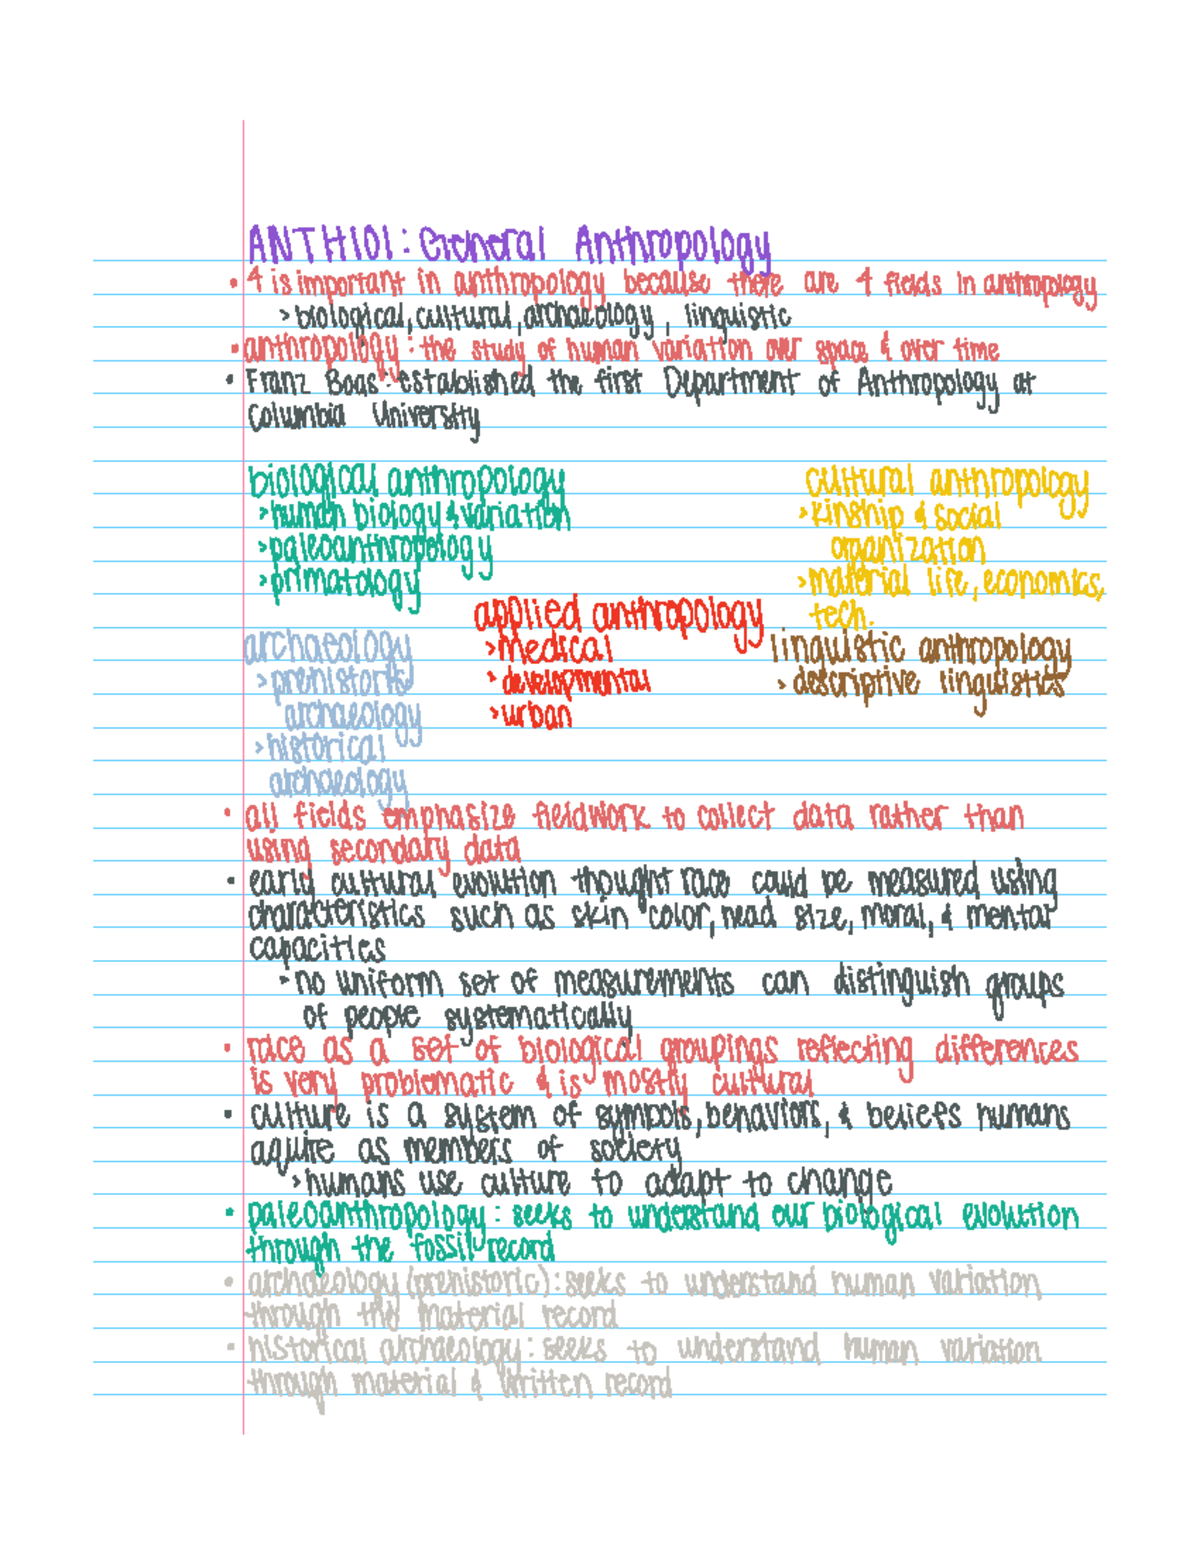 ANTH101: General Anthropology
• 4 is important in anthropology because there are 4 fields in anthropology
> biological, cultural, archaeology, linguistic
• anthropology: the study of human variation over space & over time
• Franz Boas: established the first Department of Anthropology at
Columbia University
biological anthropology
> human biology & variation
> paleoanthropology
> primatology
cultural anthropology
> kinship & social
organization
> material life, economics,
tech.
applied anthropology
> medical
> developmental
> urban
archaeology
> prehistoric
archaeology
> historical
archaeology
linguistic anthropology
> descriptive linguistics
• all fields emphasize fieldwork to collect data rather than
using secondary data
• early cultural evolution thought race could be measured using
characteristics such as skin color, head size, moral, & mental
capacities
> no uniform set of measurements can distinguish groups
of people systematically
• race as a set of biological groupings reflecting differences
is very problematic & is mostly cultural
• culture is a system of symbols, behaviors, & beliefs humans
aquire as members of society
> humans use culture to adapt to change
• paleoanthropology: seeks to understand our biological evolution
through the fossil record
• archaeology (prehistoric): seeks to understand human variation
through the material record
• historical archaeology: seeks to understand human variation
through material & written record